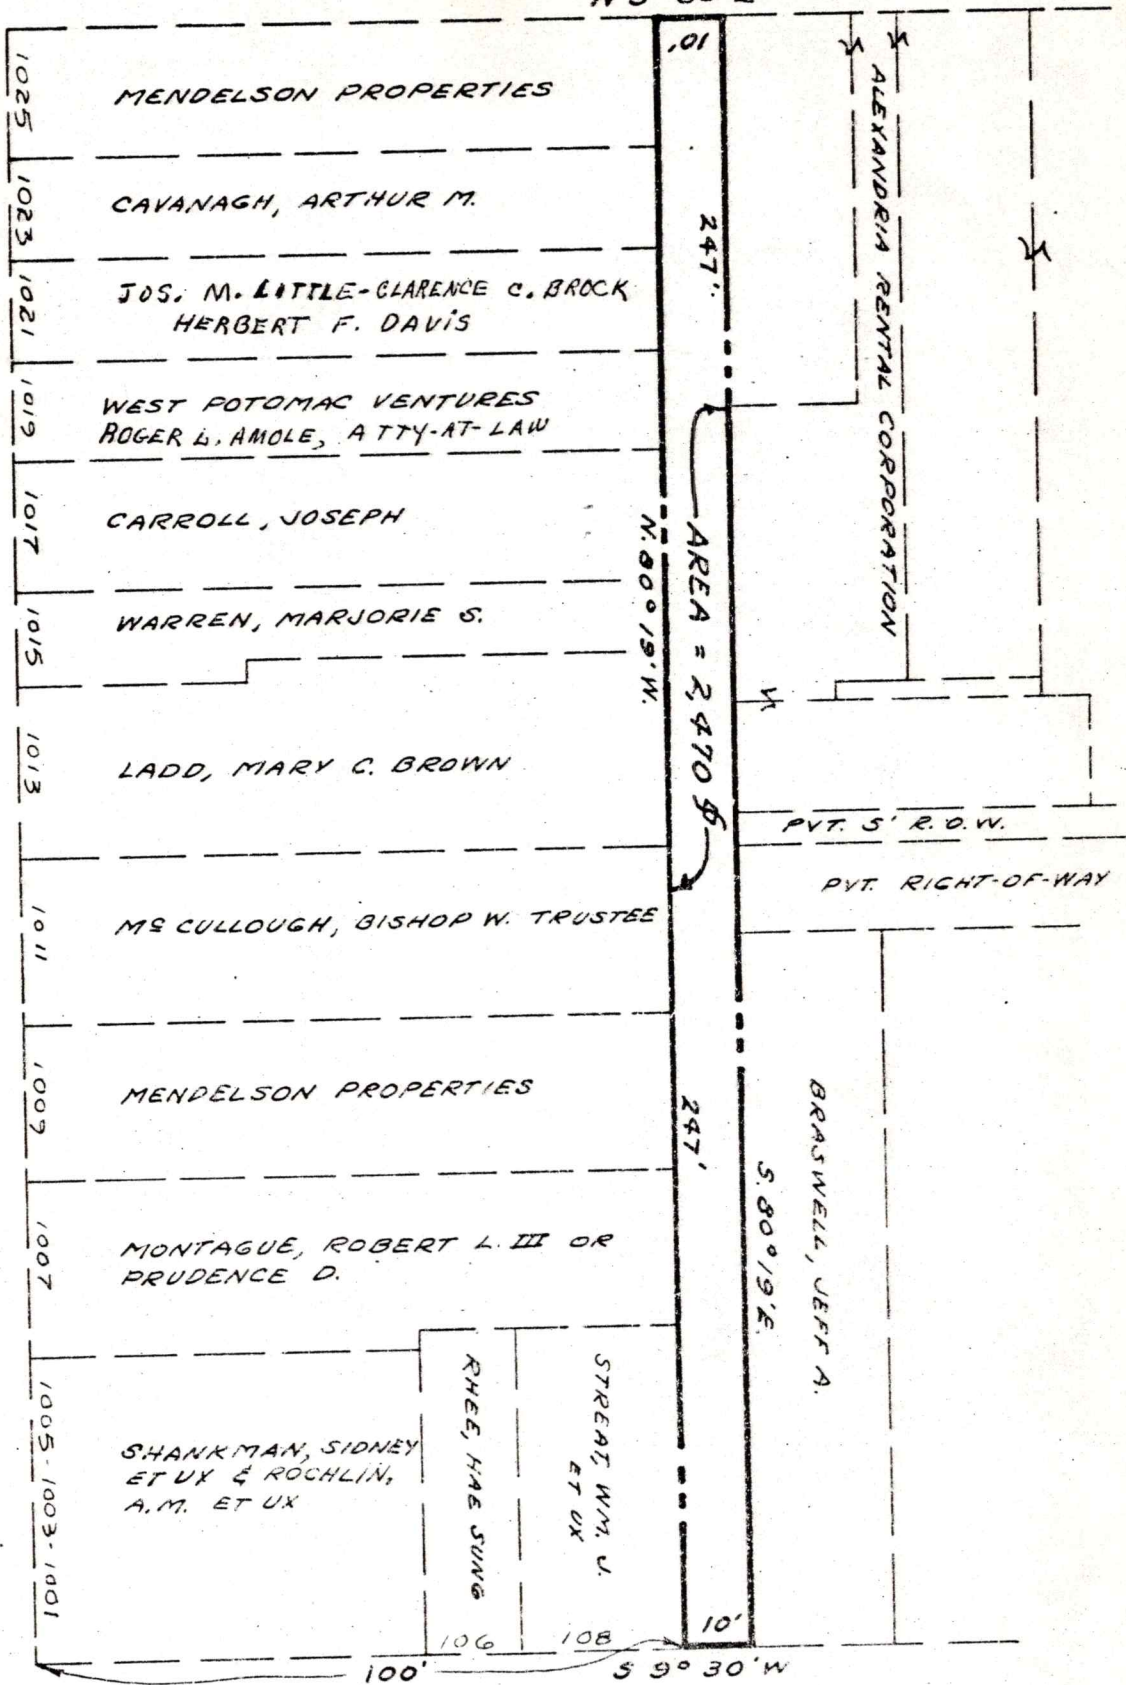 10'
1025
MENDELSON PROPERTIES
1023
CAVANAGH, ARTHUR M.
1021
JOS. M. LITTLE-CLARENCE C. BROCK
HERBERT F. DAVIS
1019
WEST POTOMAC VENTURES
ROGER L. AMOLE, ATTY-AT-LAW
1017
CARROLL, JOSEPH
1015
WARREN, MARJORIE S.
1013
LADD, MARY C. BROWN
1011
Mc CULLOUGH, BISHOP W. TRUSTEE
1009
MENDELSON PROPERTIES
1007
MONTAGUE, ROBERT L. III OR
PRUDENCE D.
1005-1003-1001
SHANKMAN, SIDNEY
ET UX & ROCHLIN,
A.M. ET UX
RHEE, HAE SUNG
106
STREAT, WM. J.
ET UX
108
100'
247'
N. 80° 19' W.
AREA = 2,470
247'
S. 80° 19' E.
10'
S 9° 30' W
ALEXANDRIA RENTAL CORPORATION
PVT. 5' R.O.W.
PVT. RIGHT-OF-WAY
BRASWELL, JEFF A.